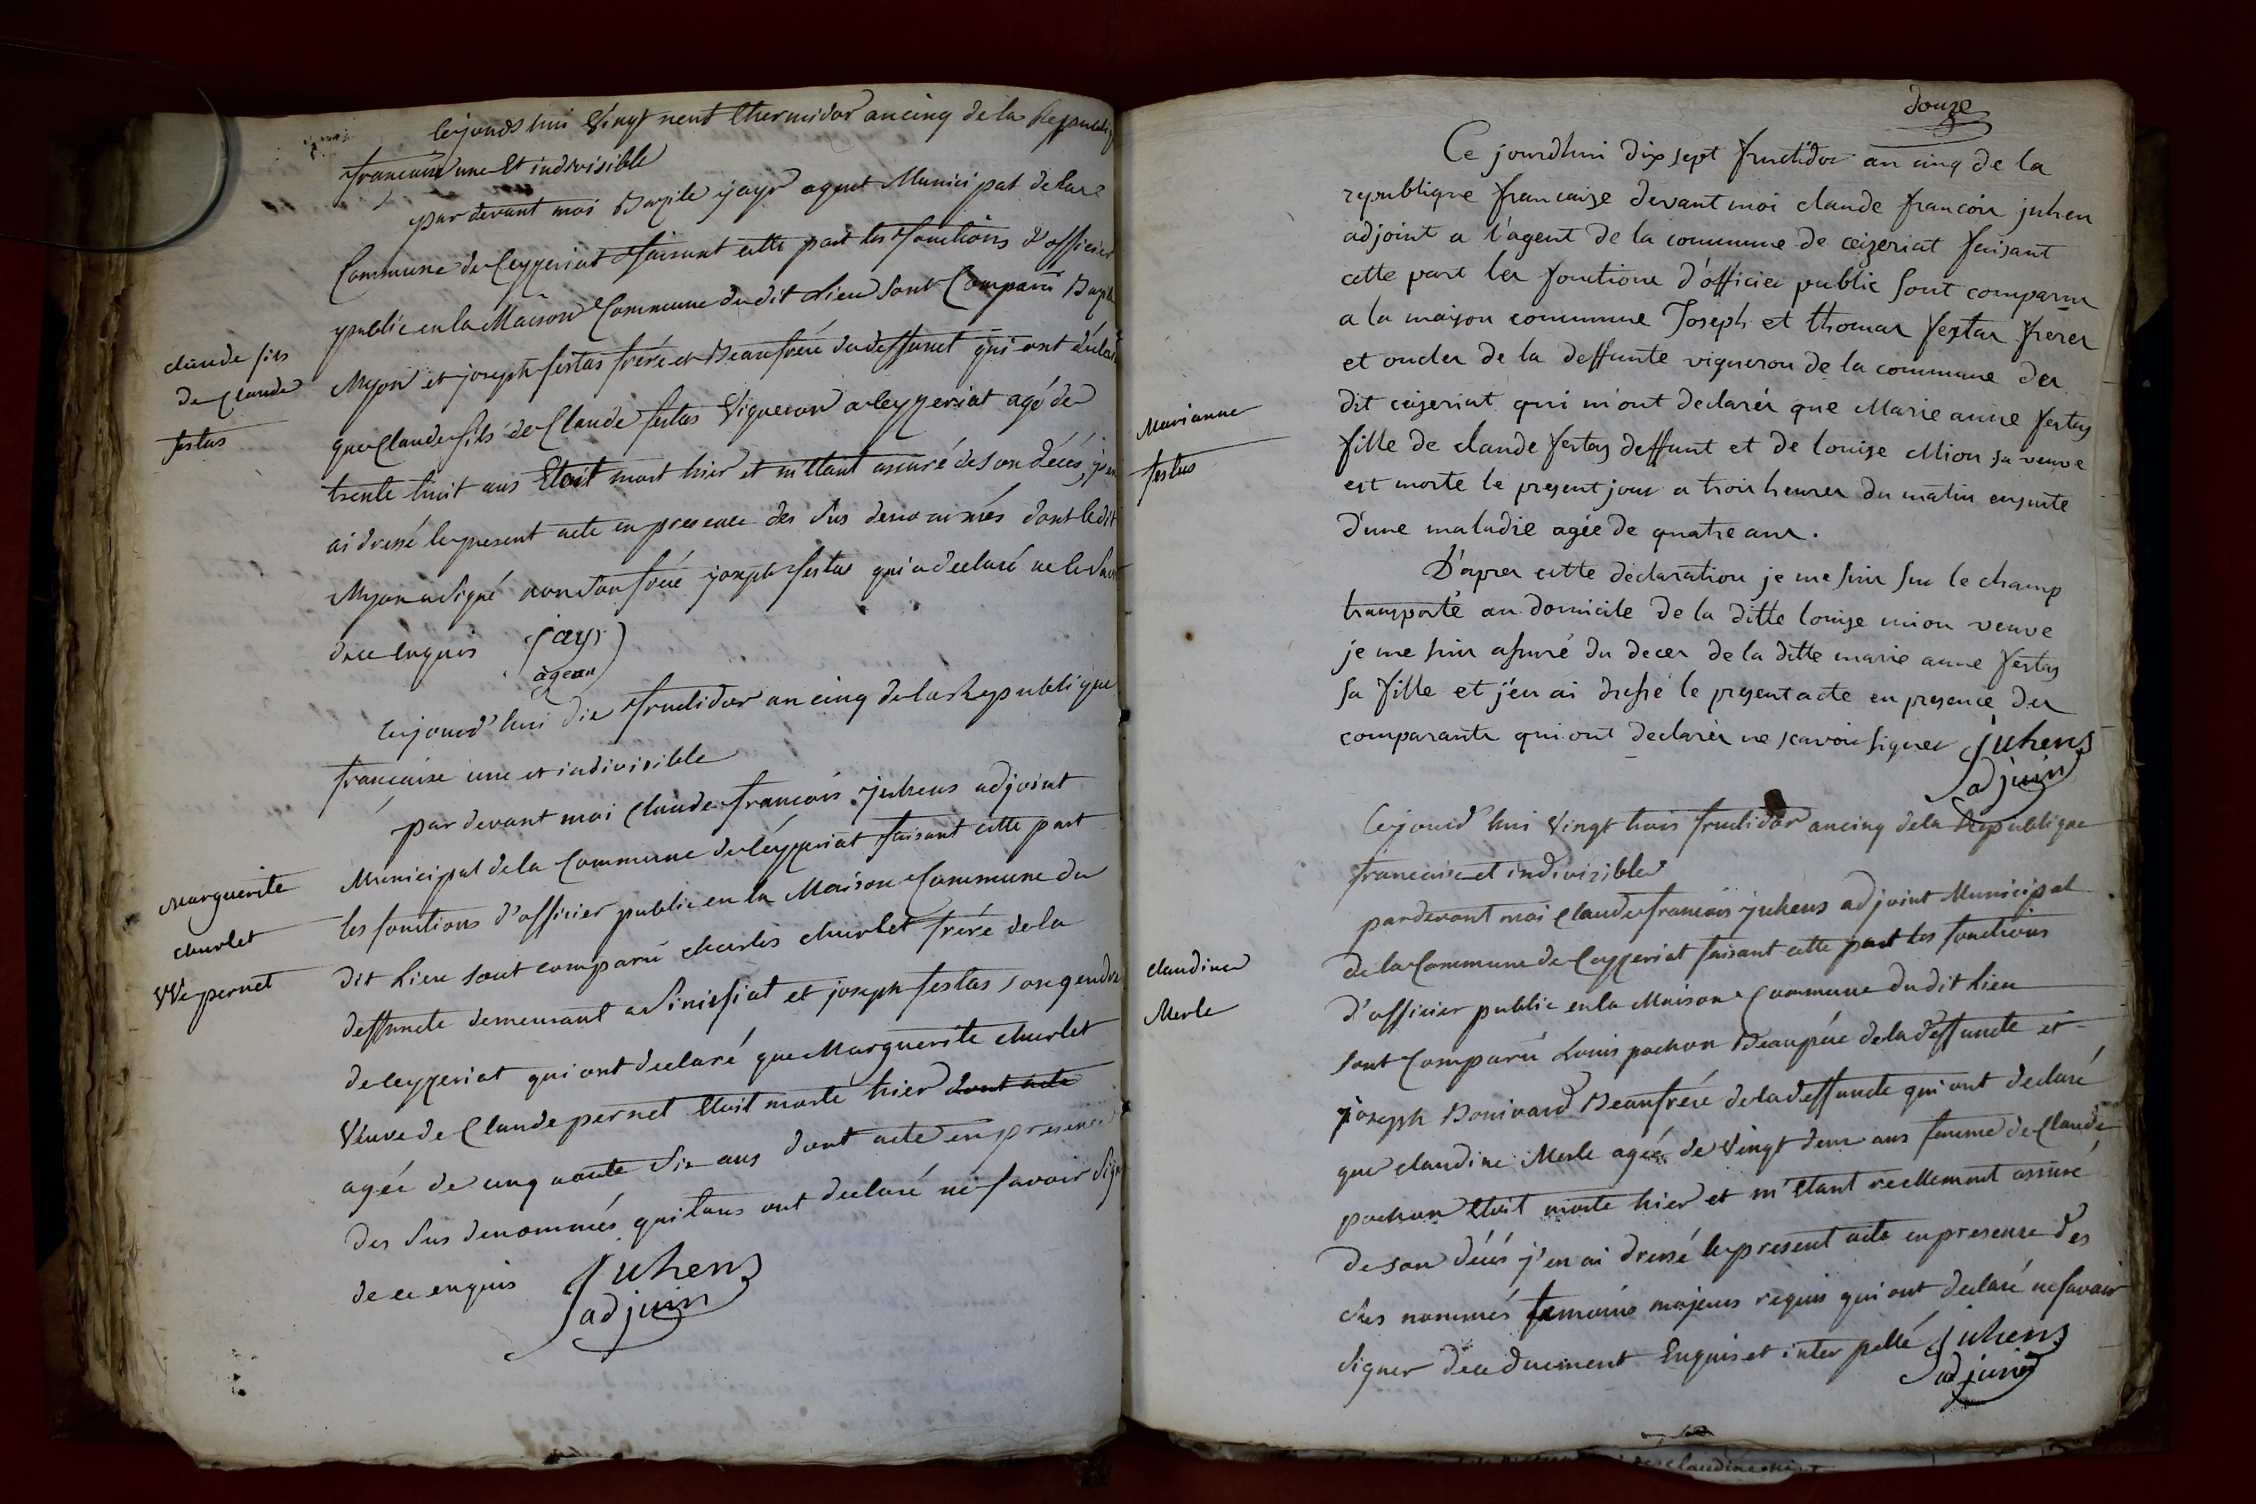 Cejourd'hui Vingt neuf thermidor an cinq de la Republiq
francaise une Et indivisible
par devant moi Bazile jayr agent Municipal de la
Commune de Ceyzeriat faisant cette part les fonctions d'officier
public en la Maison Commune du dit Lieu sont Comparu Bazile
claude fils
de Claude
festas
Myon et joseph festas frére et Beaufrére du deffunct qui ont déclaré
que Claude fils de Claude festas Vigneron a Ceyzeriat agé de
trente huit ans Etoit mort hier et m'étant assuré de son décès, j'en
ai dressé le present acte en presence des sus denommés dont le dit
Myon a signé non son frére joseph festas qui a declaré ne le savoir
de ce enquis jayr
agean
Cejourd'hui dix fructidor an cinq de la Republique
francaise une et indivisible
par devant moi Claude francois juhens adjoint
Municipal de la Commune de Ceyzeriat faisant cette part
Marguerite
churlet
Vve pernet
les fonctions d'officier public en la Maison Commune du
dit Lieu sont comparu charles churlet frére de la
deffuncte demeurant a Simisiat et joseph festas son gendre
de Ceyzeriat qui ont declaré que Marguerite churlet
Veuve de Claude pernet Etoit morte hier dont acte
agée de cinquante six ans dont acte en presence
des sus denommés qui tous ont declaré ne savoir sign
de ce enquis Juhens
adjuin
douze
Ce jourdhui dix sept fructidor an cinq de la
republique francaize devant moi claude francois juhen
adjoint a l'agent de la commune de ceizeriat faisant
cette part les fonctions d'officier public sont comparus
a la maison commune Joseph et thomas festas freres
et oncles de la deffunte vigneron de la commune du
Marianne
festas
dit ceizeriat qui m'ont declarés que Marie anne festas
fille de claude festas deffunt et de louise Mion sa veuve
est morte le present jour a trois heures du matin ensuite
d'une maladie agée de quatre ans.
D'apres cette déclaration je me suis sur le champ
transporté au domicile de la ditte louise mion veuve
je me suis assuré du deces de la ditte marie anne festas
sa fille et j'en ai dressé le present acte en presence des
comparants qui ont declarés ne scavoir signer Juhens
adjuin
Cejourd'hui Vingt trois fructidor an cinq de la Republique
francaise et indivisible
par devant moi Claude francois juhens adjoint Municipal
de la Commune de Ceyzeriat faisant cette part les fonctions
claudine
Merle
d'officier public en la Maison Commune du dit Lieu
sont Comparu Louis pochon Beaupére de la deffuncte et
joseph Bonivard Beaufrére de la deffuncte qui ont declaré
que claudine Merle agée de Vingt deux ans femme de Claude
pochon Etoit morte hier et m'étant reellement assuré
de son décès j'en ai dressé le present acte en presence des
sus nommés temoins majeurs requis qui ont declaré ne savoir
signer de ce duement Enquis et interpellé Juhens
adjuin